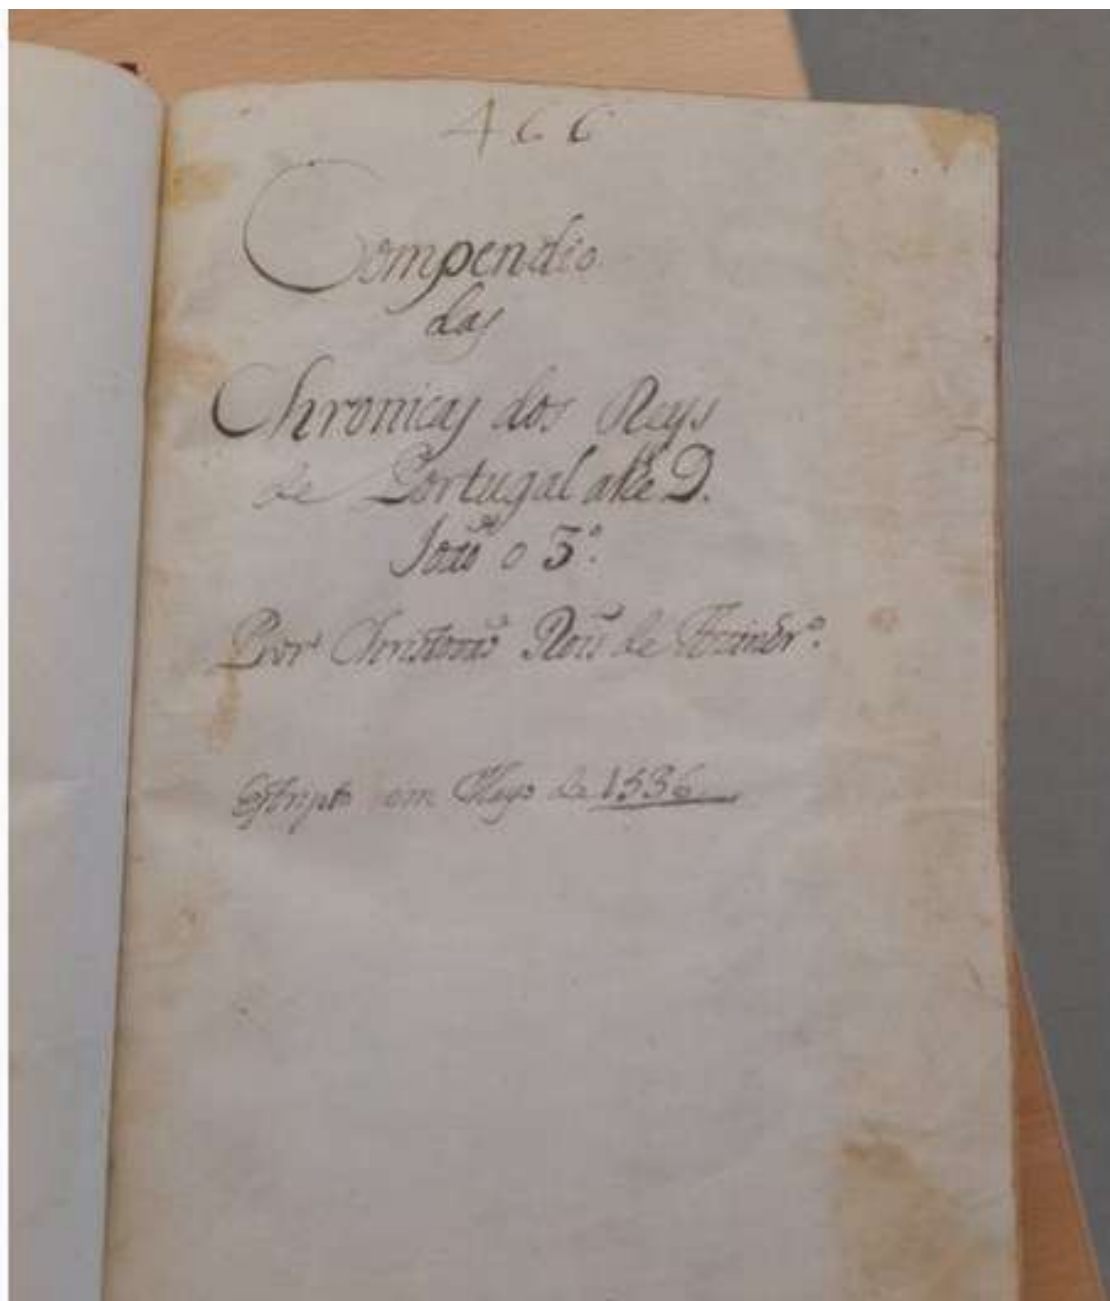 466
Compendio
das
Chronicas dos Reys
de Portugal athe D.
Joaõ o 3º.
Por Christovaõ Roiz de
Escripto em Mayo de 1536